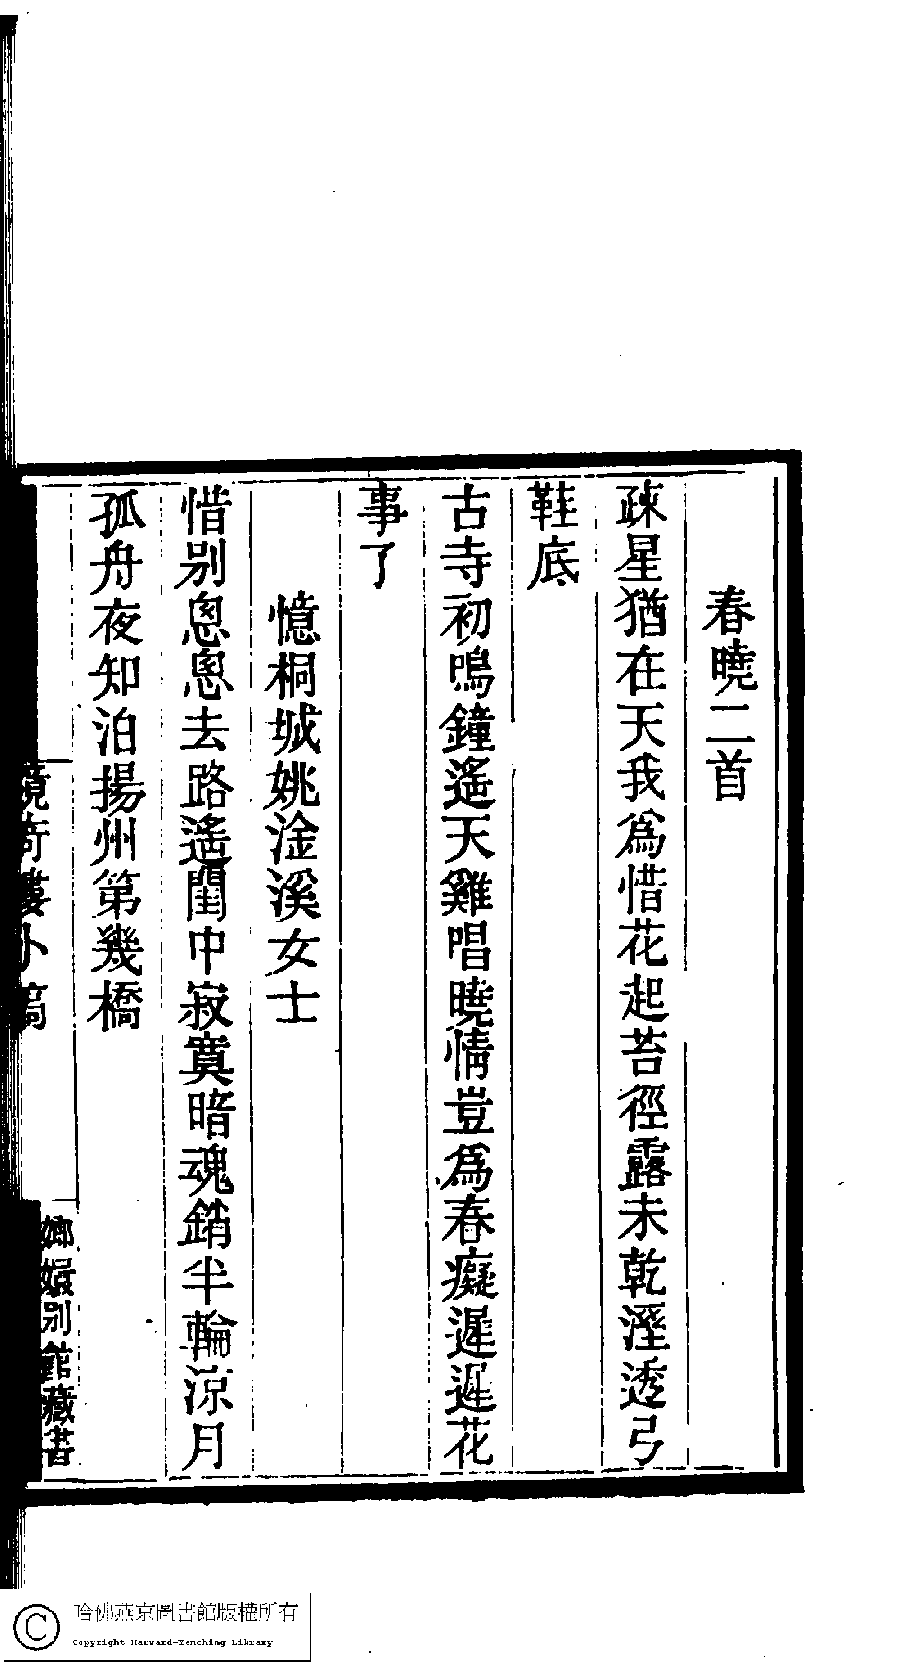 春曉二首
疎星猶在天我爲惜花起苔徑露未乾溼透弓
鞋底
古寺初鳴鐘遙天雞唱曉情豈爲春癡遲遲花
事了
憶桐城姚淦溪女士
惜別悤悤去路遙閨中寂寞暗魂銷半輪涼月
孤舟夜知泊揚州第幾橋
小稿
嫏嬛別館藏書
哈佛燕京圖書館版權所有
Copyright Harvard-Yenching Library